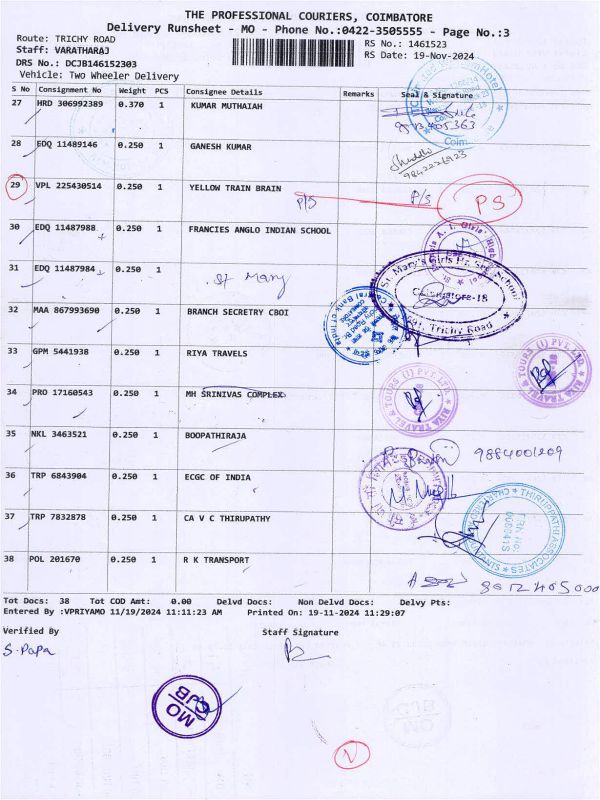 THE PROFESSIONAL COURIERS, COIMBATORE
Delivery Runsheet - MO - Phone No.:0422-3505555 - Page No.:3
Route: TRICHY ROAD
Staff: VARATHARAJ
RS No.: 1461523
DRS No.: DCJB146152303
RS Date: 19-Nov-2024
Vehicle: Two Wheeler Delivery
S No Consignment No Weight PCS Consignee Details Remarks Seal & Signature
27 HRD 306992389 0.370 1 KUMAR MUTHAIAH
28 EDQ 11489146 0.250 1 GANESH KUMAR
9842226923
29 VPL 225430514 0.250 1 YELLOW TRAIN BRAIN
P/S P/S PS
30 EDQ 11487988 0.250 1 FRANCIES ANGLO INDIAN SCHOOL
31 EDQ 11487984 0.250 1
St Mary
St. Mary's Girls Hr. Sec. School
Coimbatore-18
Trichy Road
32 MAA 867993690 0.250 1 BRANCH SECRETRY CBOI
33 GPM 5441938 0.250 1 RIYA TRAVELS
RIYA TRAVEL & TOURS (I) PVT. LTD.
34 PRO 17160543 0.250 1 MH SRINIVAS COMPLEX
RIYA TRAVEL & TOURS (I) PVT. LTD.
35 NKL 3463521 0.250 1 BOOPATHIRAJA
9884001209
36 TRP 6843904 0.250 1 ECGC OF INDIA
37 TRP 7832878 0.250 1 CA V C THIRUPATHY
THIRUPPATHI ASSOCIATES
FRN. NO.
38 POL 201670 0.250 1 R K TRANSPORT
Tot Docs: 38 Tot COD Amt: 0.00 Delvd Docs: Non Delvd Docs: Delvy Pts:
Entered By :VPRIYAMO 11/19/2024 11:11:23 AM Printed On: 19-11-2024 11:29:07
Verified By Staff Signature
S. Papa
MO
CJB